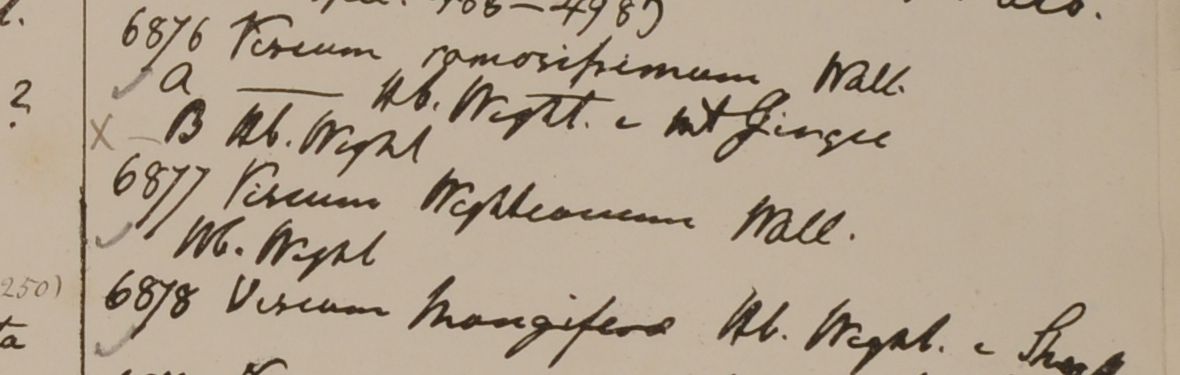 488-498)
6876 Viscum ramosissimum Wall.
a — Hb. Wight. e Mt Gingee
X — B Hb. Wight
6877 Viscum Wightianum Wall.
Hb. Wight
6878 Viscum Mangiferae Hb. Wight. e
250)
ta
?